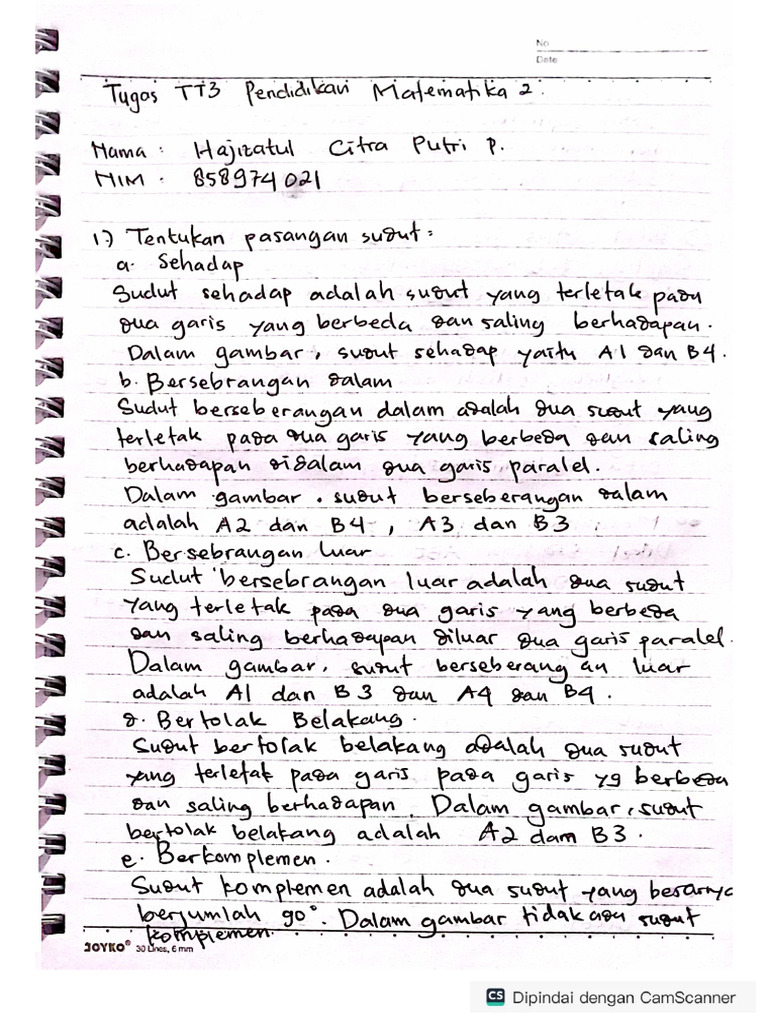 No
Date
Tugas TT3 Pendidikan Matematika 2.
Nama : Hajizatul Citra Putri P.
NIM : 858974021
1.) Tentukan pasangan sudut :
a. Sehadap
Sudut sehadap adalah sudut yang terletak pada
dua garis yang berbeda dan saling berhadapan.
Dalam gambar, sudut sehadap yaitu A1 dan B4.
b. Bersebrangan dalam
Sudut berseberangan dalam adalah dua sudut yang
terletak pada dua garis yang berbeda dan saling
berhadapan didalam dua garis paralel.
Dalam gambar. sudut berseberangan dalam
adalah A2 dan B4, A3 dan B3
c. Bersebrangan Luar
Sudut bersebrangan luar adalah dua sudut
yang terletak pada dua garis yang berbeda
dan saling berhadapan diluar dua garis paralel.
Dalam gambar, sudut berseberangan luar
adalah A1 dan B3 dan A4 dan B4.
d. Bertolak Belakang.
Sudut bertolak belakang adalah dua sudut
yang terletak pada garis pada garis yg berbeda
dan saling berhadapan. Dalam gambar, sudut
bertolak belakang adalah A2 dam B3.
e. Berkomplemen.
Sudut komplemen adalah dua sudut yang besarnya
berjumlah 90°. Dalam gambar tidak ada sudut
komplemen.
JOYKO® 30 Lines, 6 mm
CS Dipindai dengan CamScanner